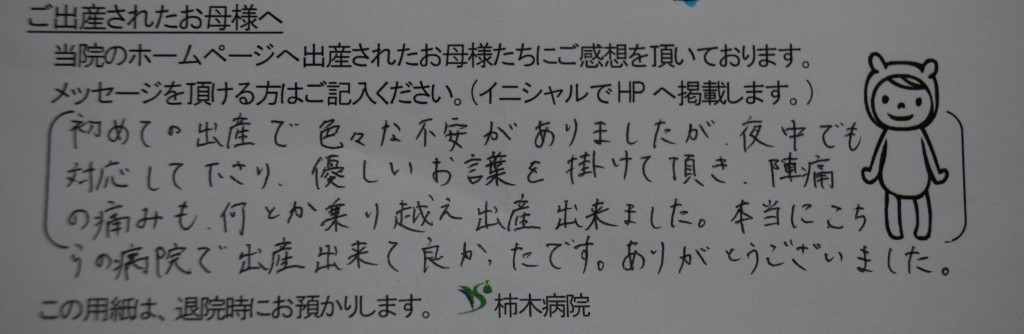 ご出産されたお母様へ
当院のホームページへ出産されたお母様たちにご感想を頂いております。
メッセージを頂ける方はご記入ください。(イニシャルでHPへ掲載します。)
初めての出産で色々な不安がありましたが、夜中でも
対応して下さり、優しいお言葉を掛けて頂き、陣痛
の痛みも、何とか乗り越え出産出来ました。本当にこち
らの病院で出産出来て良かったです。ありがとうございました。
この用紙は、退院時にお預かりします。 柿木病院